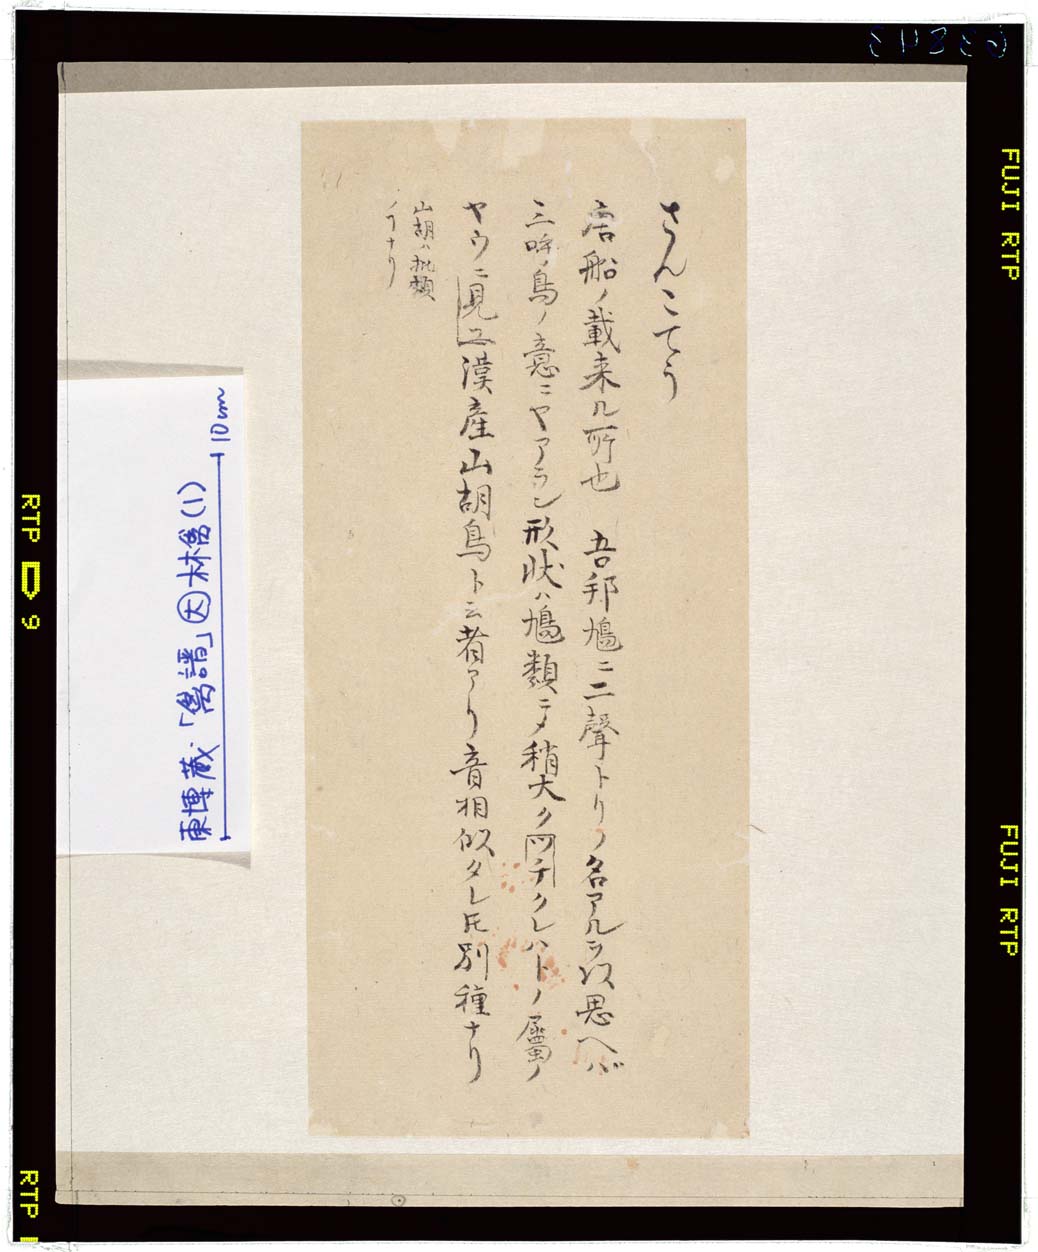 さんこてう
唐船ノ載来ル所也 吾邦鳩ニ二聲トリノ名アルヲ以思ヘバ
三呼ノ鳥ノ意ニヤアラン形状ハ鳩類ニメ稍大クツチクレハトノ屬ノ
ヤウニ見ユ漢産山胡鳥ト云者アリ音相似タレ𪜈別種ナリ
山胡ハ鵯類
ノヿナリ
東博蔵「禽譜」 林禽(1)
10cm
FUJI RTP
FUJI RTP
RTP 9
RTP